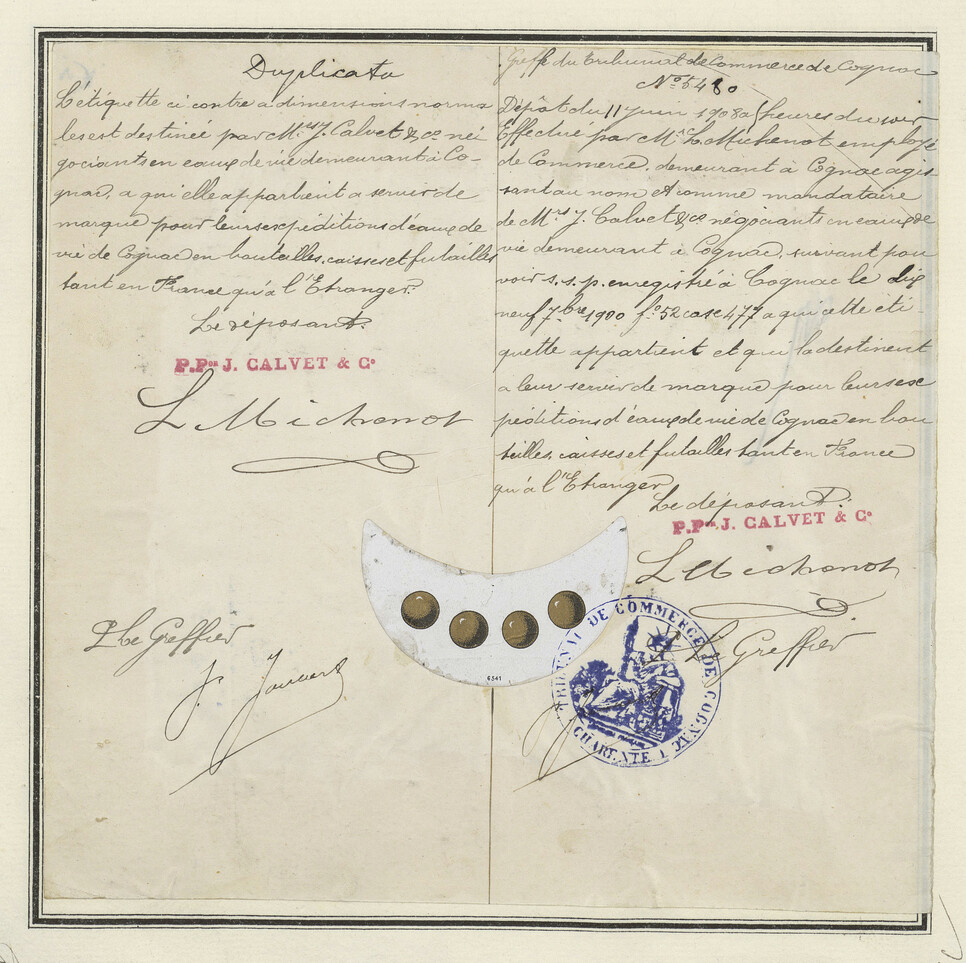 Duplicata
L'étiquette ci contre a dimensions norma
les est destinée par Mrs J. Calvet & Co né
gociants en eaux de vie demeurant à Co-
gnac, a qui elle appartient a servir de
marque pour leurs expéditions d'eaux de
vie de Cognac en bouteilles, caisses et futailles
tant en France qu'à l'Etranger.
Le déposant.
P.Pon J. CALVET & Co
L Michenot
P. Le Greffier
Greffe du Tribunal de Commerce de Cognac
No 5480
Dépôt du 11 Juin 1908 a heures du soir
Effectué par Mr L. Michenot employé
de Commerce, demeurant à Cognac agis
sant au nom et comme mandataire
de Mrs J. Calvet & Co négociants en eaux de
vie demeurant à Cognac, suivant pou
voir s.s.p. enregistré à Cognac le dix
neuf 7bre 1900 fo 52 case 477 a qui cette éti-
quette appartient et qui la destinent
a leur servir de marque pour leurs ex
péditions d'eaux de vie de Cognac en bou
teilles, caisses et futailles tant en France
qu'à l'Etranger
Le déposant.
P.Pon J. CALVET & Co
L Michenot
P. Le Greffier
6341
TRIBUNAL DE COMMERCE DE COGNAC
CHARENTE